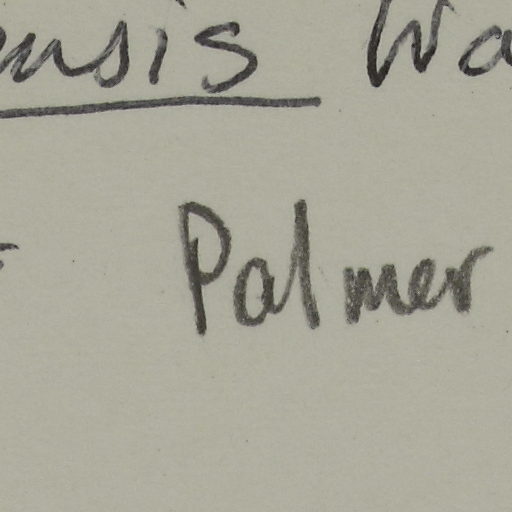 ensis Wa
Palmer